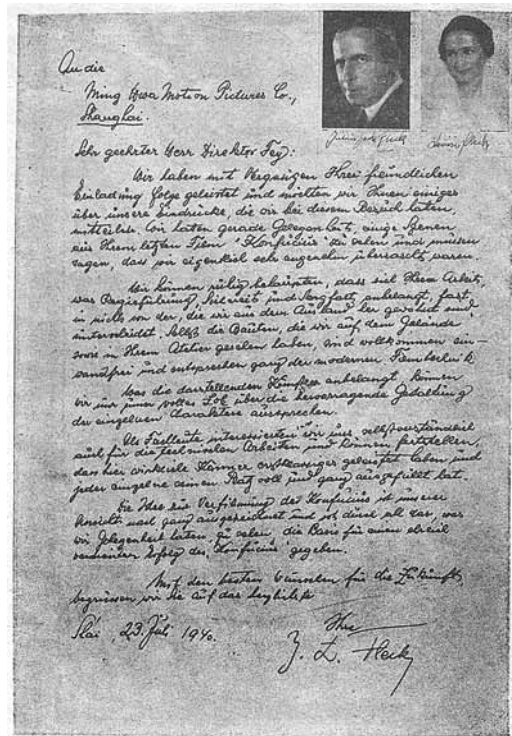 An die
Ming Hwa Motion Pictures Co.,
Shanghai.
Sehr geehrter Herr Direktor Fey:
Wir haben mit Vergnügen Ihrer freundlichen
Einladung folge geleistet und möchten wir Ihnen einiges
über unsere Eindrücke, die wir bei diesem Besuch hatten,
mitteilen. Wir hatten gerade Gelegenheit, einige Szenen
aus Ihrem letzten Film "Konfucius" zu sehen und müssen
sagen, dass wir eigentlich sehr angenehm überrascht waren.
Wir können ruhig behaupten, dass sich Ihre Arbeit,
was Regieführung, und Sorgfalt anbelangt, fast
in nichts von der, die wir aus dem Ausland her gewohnt sind
unterscheidet. Selbst die Bauten, die wir auf dem Gelände
sowie in Ihrem Atelier gesehen haben, sind vollkommen ein-
wandfrei und entsprechen ganz der modernen Filmtechnik
Was die darstellenden Künstler anbelangt, können
wir nur unser volles Lob über die hervorragende Gestaltung
der einzelnen Charaktere aussprechen.
Als Fachleute interessierten wir uns selbstverständlich
auch für die technischen Arbeiten und können feststellen,
dass hier wirkliche Könner erstklassiges geleistet haben und
jeder einzelne seinen Platz voll und ganz ausgefüllt hat.
Die Idee zur Verfilmung des Konfucius ist unserer
Ansicht nach ganz ausgezeichnet und ist durch all das, was
wir Gelegenheit hatten, zu sehen, die Basis für einen
Erfolg des "Konfucius" gegeben.
Mit den besten Wünschen für die Zukunft,
begrüssen wir Sie auf das
23. Juli 1940.
Ihre
J. L. Fleck